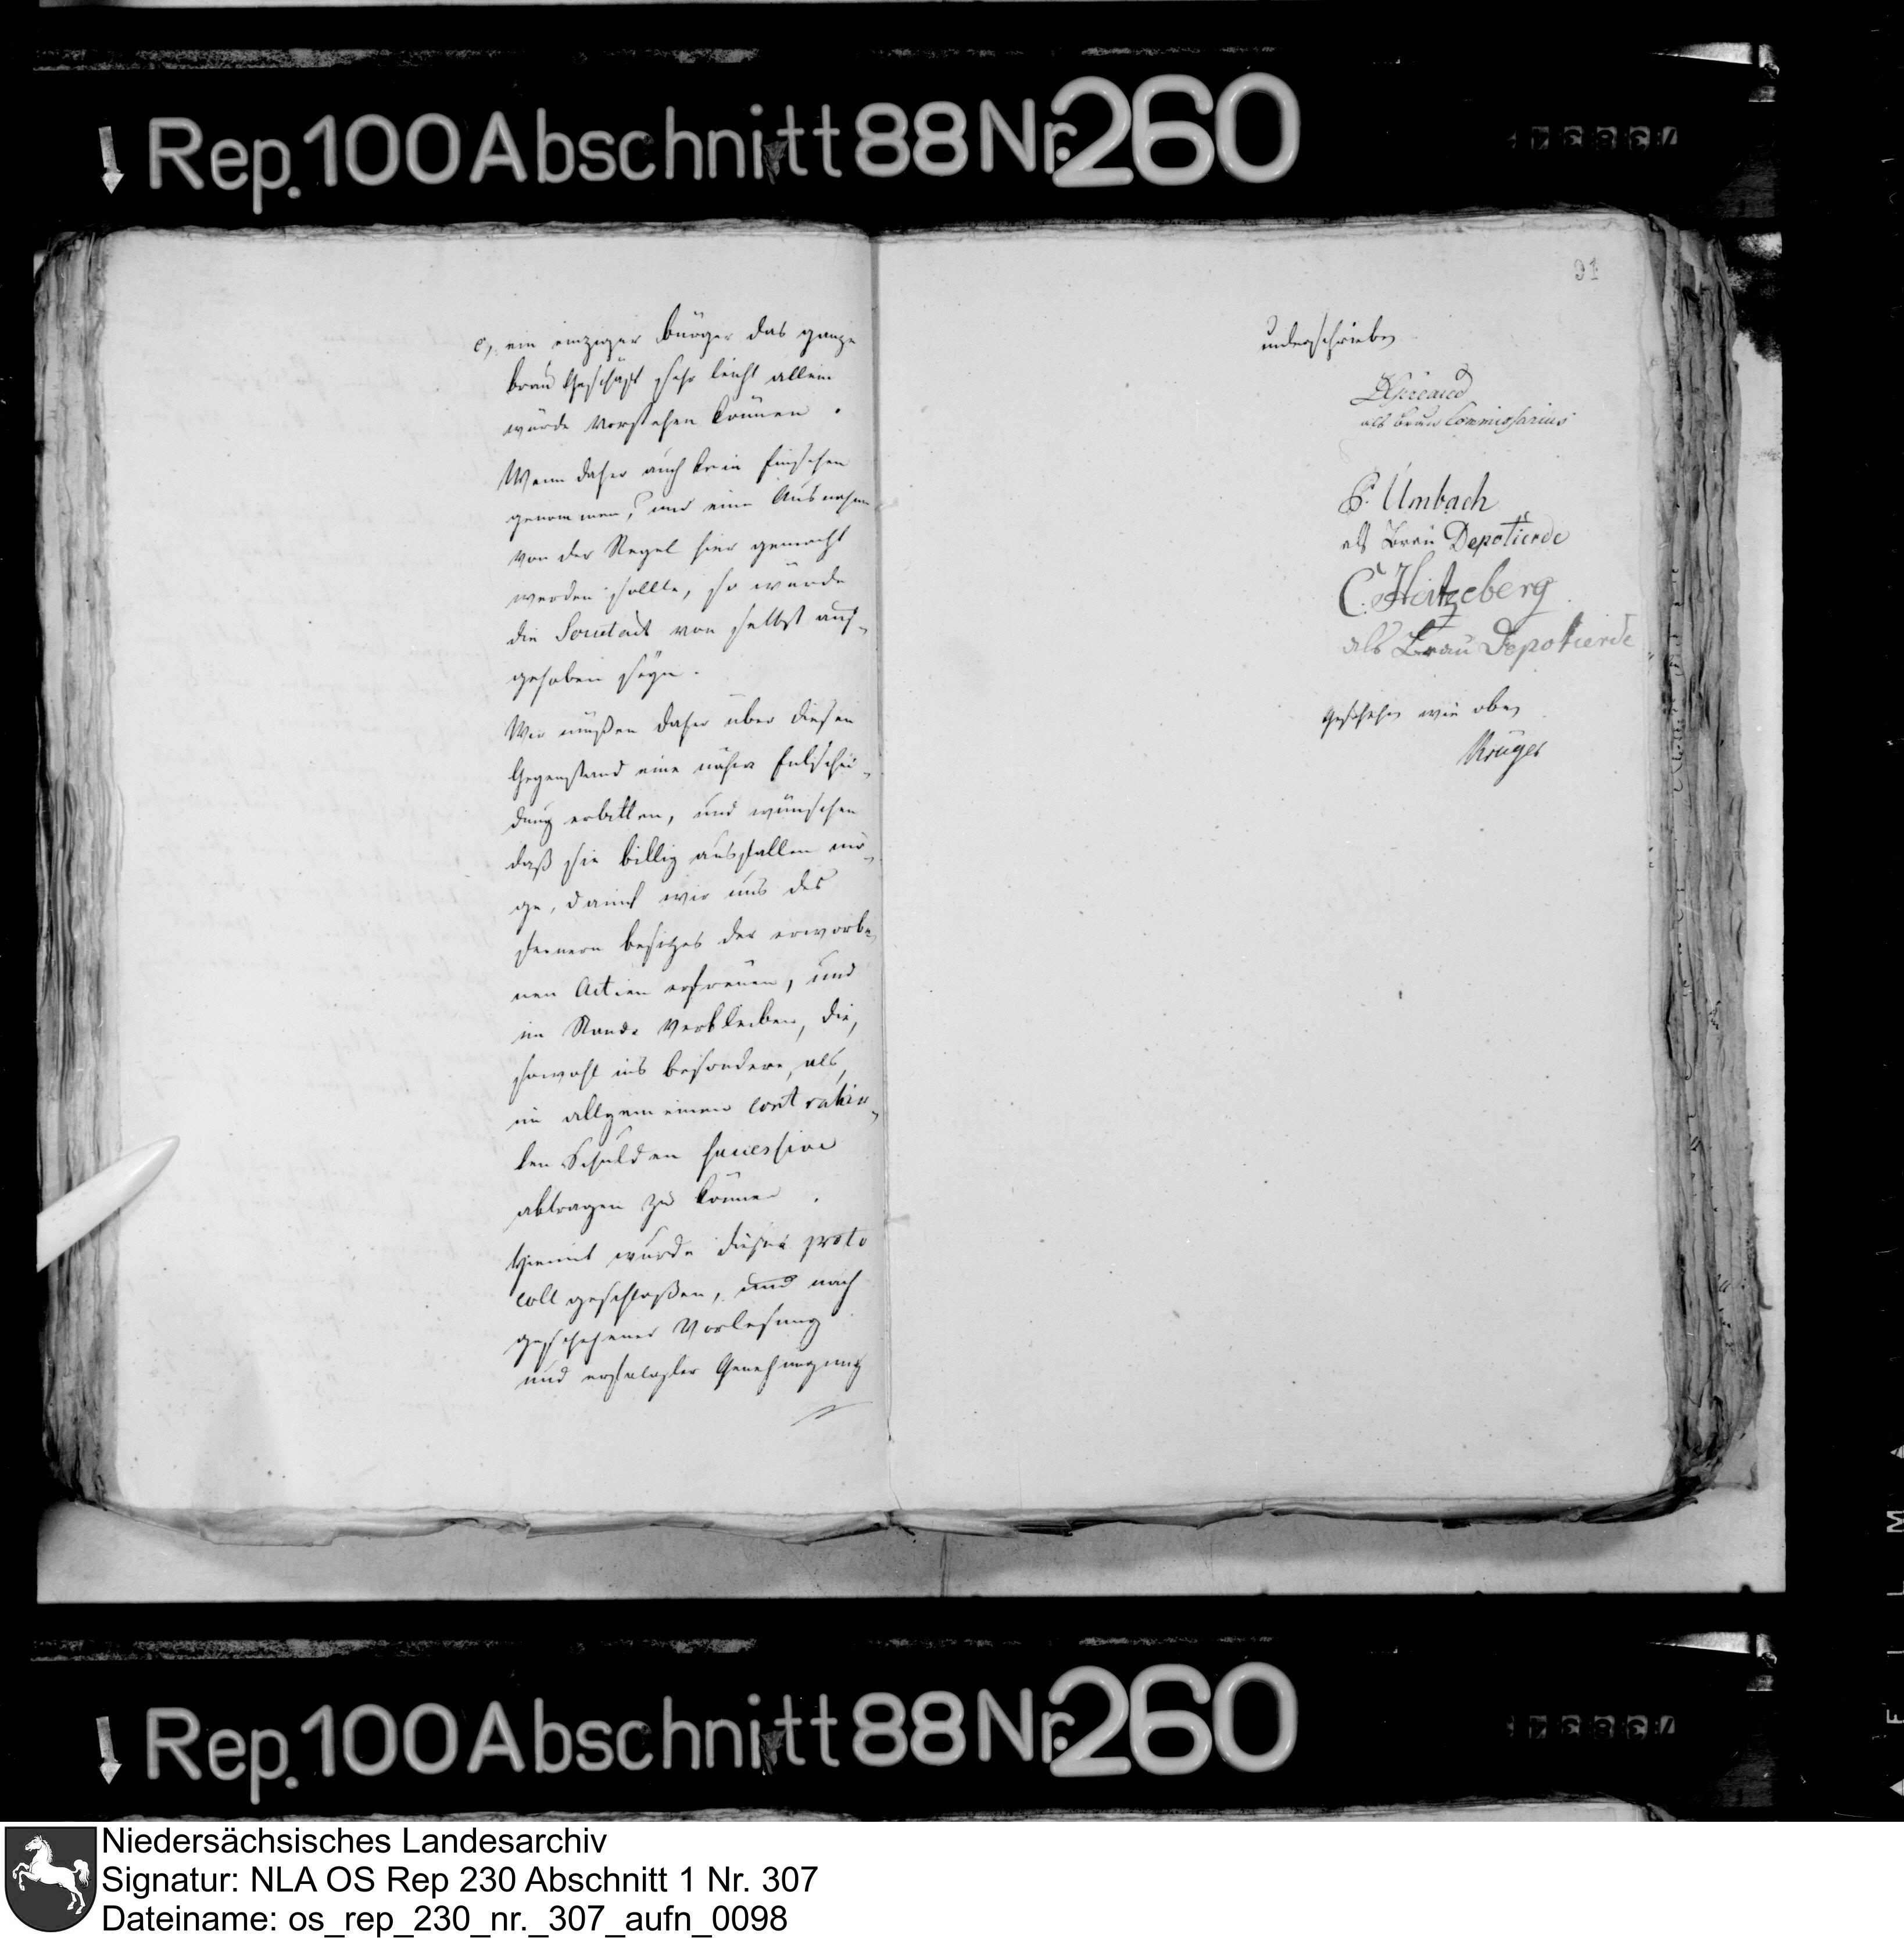 Rep. 100 Abschnitt 88 Nr. 260
91
c, ein einziger Bürger das ganze
Brau Geschäft sehr leicht allein
würde vorstehen können.
Wenn daher auch kein Einsehen
genommen, und eine Ausnahme
von der Regel hier gemacht
werden sollte, so würde
die Societaet von selbst auf-
gehoben seyn.
Wir müßen daher über diesen
Gegenstand eine nähere Entschei-
dung erbitten, und wünschen
daß sie billig ausfallen mö-
ge, damit wir uns des
fernern besitzes der erworbe-
nen Actien erfreuen, und
im Stande verbleiben, die,
sowohl ins besondere, als,
im allgemeinen contrahir-
ten Schulden successive
abtragen zu können.
Hiemit wurde dieses proto
coll geschloßen, und nach
geschehener Vorlesung
und erfolgter Genehmigung
unterschrieben
als Brau Commissarius
Umbach
als Brau Depotierde
C. Hertzeberg
als Brau Depotierde
Geschehen wie oben
Krüger
Rep. 100 Abschnitt 88 Nr. 260
Niedersächsisches Landesarchiv
Signatur: NLA OS Rep 230 Abschnitt 1 Nr. 307
Dateiname: os_rep_230_nr._307_aufn_0098